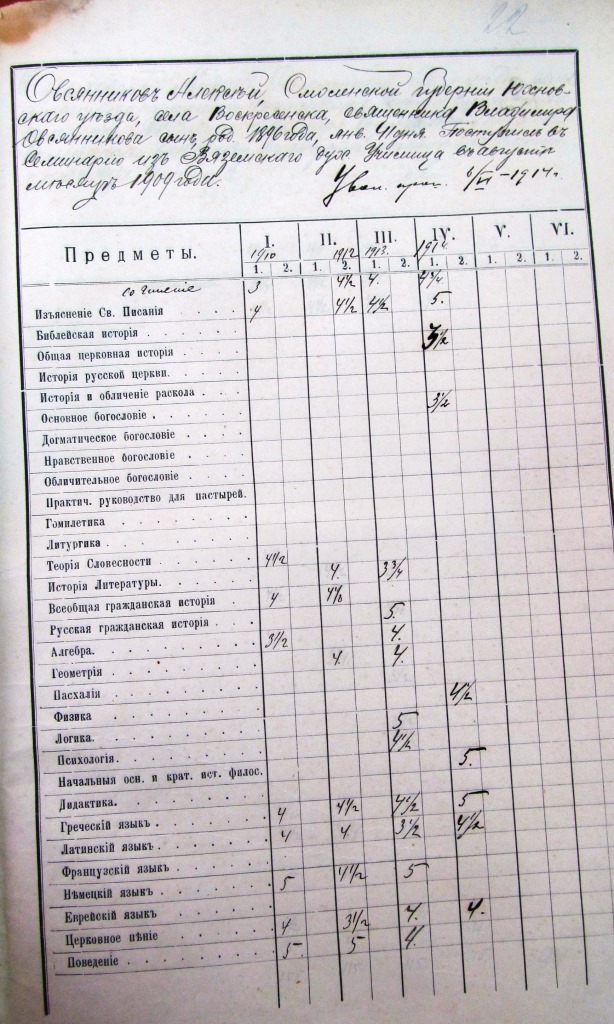 22
Овсянниковъ Алексѣй, Смоленской губерніи Юхнов-
скаго уѣзда, села Воскресенска, священника Владимира
Овсянникова сынъ, род. 1896 года, янв. дня. Поступилъ въ
Семинарію изъ Вяземскаго дух. Училища въ августѣ
мѣсяцѣ 1909 года. Увол. 6/VI – 1914 г.
Предметы. I. II. III. IV. V. VI.
1910 1912 1913. 1914
1. 2. 1. 2. 1. 2. 1. 2. 1. 2. 1. 2.
сочиненіе 3 4½ 4. 4¾
Изъясненіе Св. Писанія 4 4½ 4½ 5.
Библейская исторія
Общая церковная исторія 3½
Исторія русской церкви.
Исторія и обличеніе раскола
Основное богословіе 3½
Догматическое богословіе
Нравственное богословіе
Обличительное богословіе
Практич. руководство для пастырей.
Гомилетика
Литургика
Теорія Словесности 4½
Исторія Литературы. 4. 3¾
Всеобщая гражданская исторія 4 4½
Русская гражданская исторія 5.
Алгебра. 3½ 4.
Геометрія 4. 4.
Пасхалія
Физика 4½
Логика. 5
Психологія. 4½
Начальныя осн. и крат. ист. филос. 5.
Дидактика. 5
Греческій языкъ 4 4½ 4½
Латинскій языкъ 4 4. 3½ 4½
Французскій языкъ
Нѣмецкій языкъ 5 4½ 5
Еврейскій языкъ
Церковное пѣніе 4 3½ 4. 4.
Поведеніе 5. 5 4.